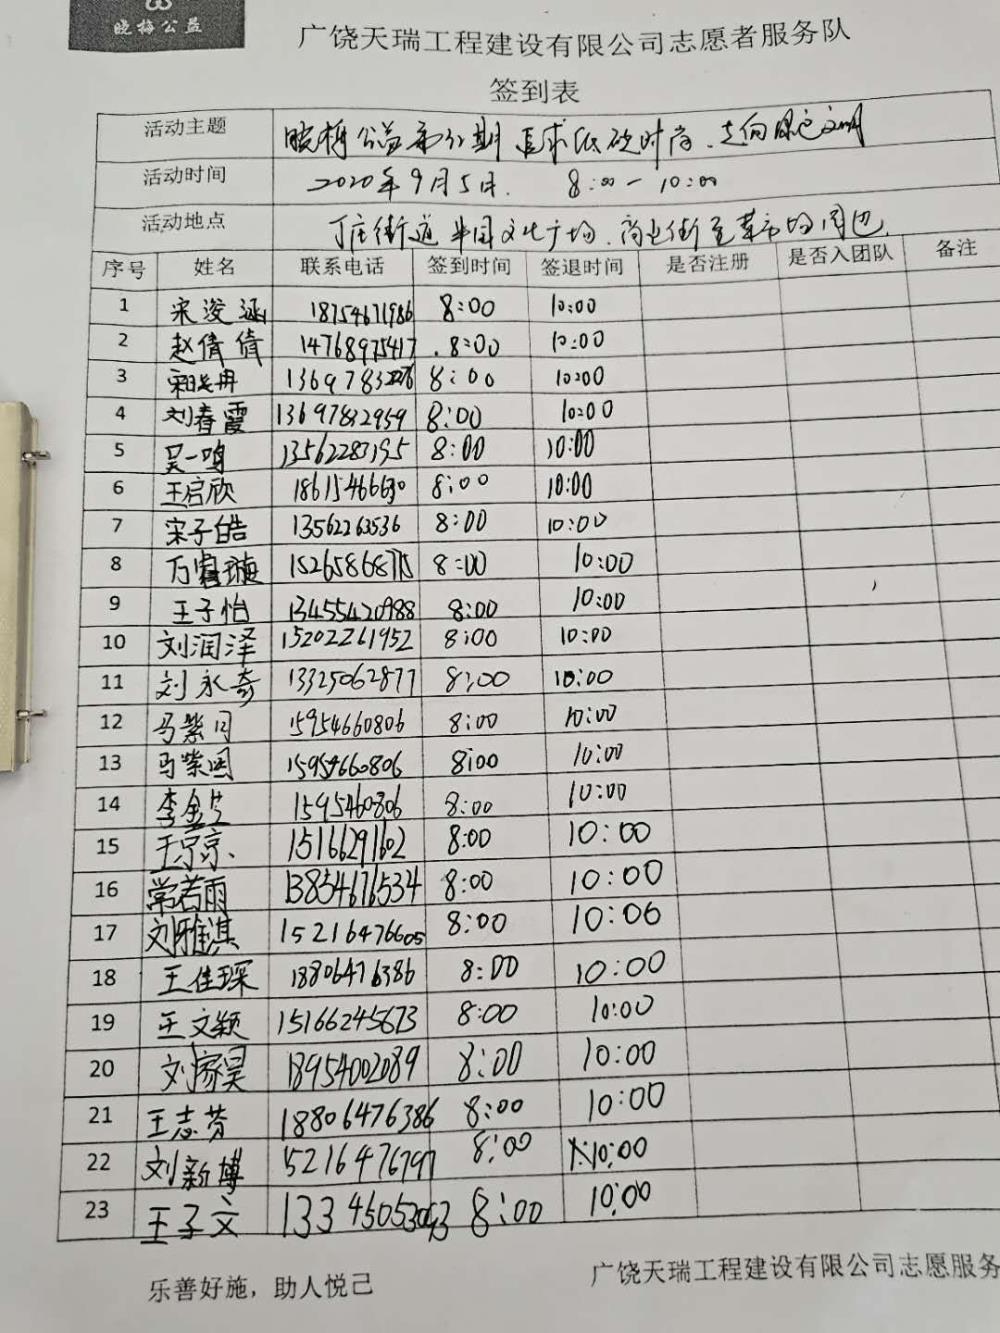 晓梅公益
广饶天瑞工程建设有限公司志愿者服务队
签到表
活动主题 晓梅公益 期 追求低碳时尚、走向绿色文明
活动时间 2020年9月5日. 8:00-10:00
活动地点 丁庄街道 文化广场、商业街至菜市场周边
序号 姓名 联系电话 签到时间 签退时间 是否注册 是否入团队 备注
1 宋浚涵 18754671986 8:00 10:00
2 赵倩倩 14768975417 8:00 10:00
3 8:00 10:00
4 刘春霞 13697832959 8:00 10:00
5 吴一鸣 13562287195 8:00 10:00
6 王启欣 18615466630 8:00 10:00
7 宋子皓 13562263536 8:00 10:00
8 万 璇 15265868715 8:00 10:00
9 王子怡 13455420988 8:00 10:00
10 刘润泽 15202261952 8:00 10:00
11 刘永奇 13325062877 8:00 10:00
12 马紫 15954660806 8:00 10:00
13 马紫 15954660806 8:00 10:00
14 李金芝 1595460806 8:00 10:00
15 王京京 15166291602 8:00 10:00
16 常若雨 13854676534 8:00 10:00
17 刘雅淇 15216476605 8:00 10:00
18 王佳琛 18806476386 8:00 10:00
19 王文颖 15166245673 8:00 10:00
20 刘家昊 18954002089 8:00 10:00
21 王志芬 18806476386 8:00 10:00
22 刘新博 5216476797 8:00 10:00
23 王子文 8:00 10:00
乐善好施，助人悦己
广饶天瑞工程建设有限公司志愿服务